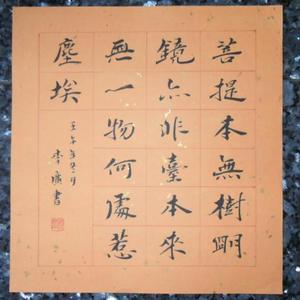 菩提本無樹明
鏡亦非臺本來
無一物何處惹
塵埃
壬午年
李 書